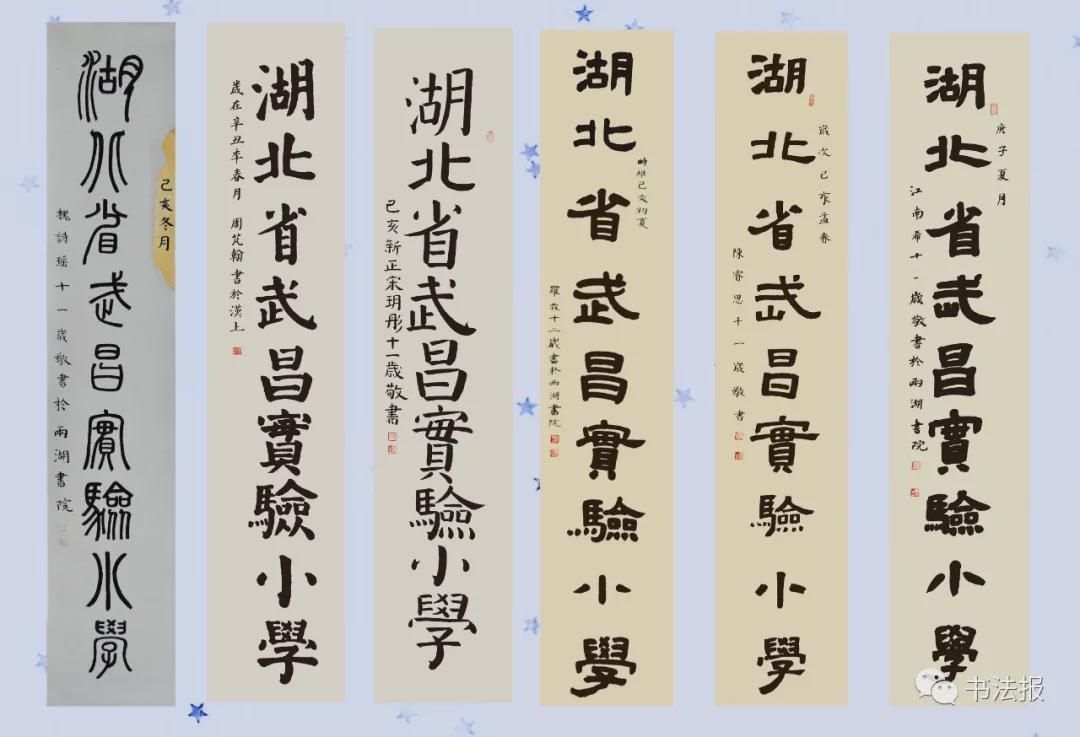 湖北省武昌實驗小學
己亥冬月
魏詩瑶十一歲敬書於兩湖書院
湖北省武昌實驗小學
歲在辛丑季春月 周芃翰書於漢上
湖北省武昌實驗小學
己亥新正宋玥彤十一歲敬書
湖北省武昌實驗小學
時維己亥初夏
羅 十二歲書於兩湖書院
湖北省武昌實驗小學
歲次己亥孟春
陳睿思十一歲敬書
湖北省武昌實驗小學
庚子夏月
江南希十一歲敬書於兩湖書院
书法报